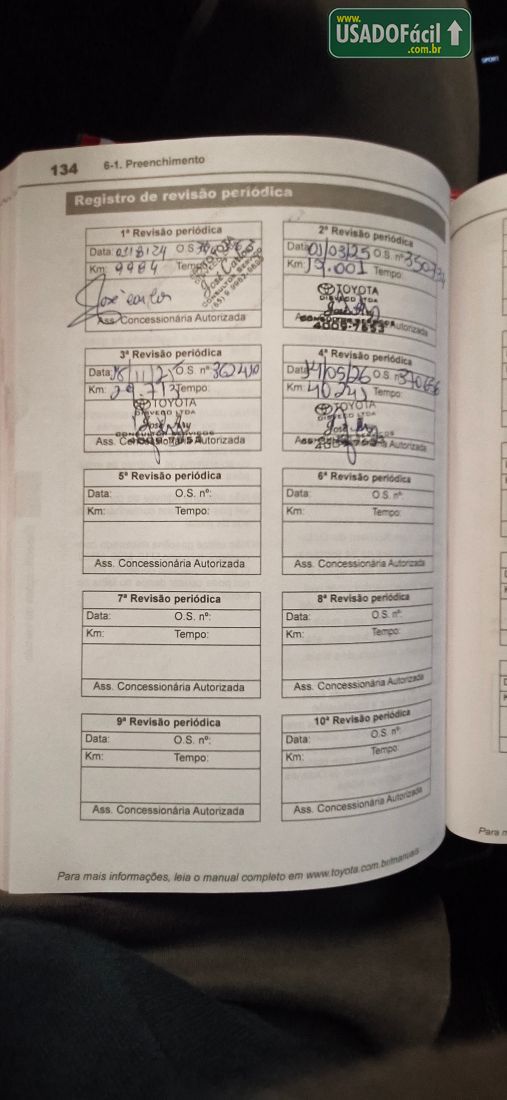 www.
USADOFácil
.com.br
SPORT
134
6-1. Preenchimento
Registro de revisão periódica
1ª Revisão periódica
Data: O.S.
Km: 9984 Tempo
José Carlos
Ass. Concessionária Autorizada
2ª Revisão periódica
Data: 01/03/25 O.S. nº 350734
Km: 19.001 Tempo:
TOYOTA
DISVECO LTDA
CONSULTOR SERVIÇOS
4009-7653
Autorizada
3ª Revisão periódica
Data: 18/11/25 O.S. nº 362430
Km: 29.713 Tempo:
TOYOTA
DISVECO LTDA
CONSULTOR SERVIÇOS
Ass. Concessionária Autorizada
4ª Revisão periódica
Data: 14/05/26 O.S. 370656
Km: 40243 Tempo:
TOYOTA
DISVECO LTDA
Ass. Autorizada
5ª Revisão periódica
Data: O.S. nº:
Km: Tempo:
Ass. Concessionária Autorizada
6ª Revisão periódica
Data: O.S. nº:
Km: Tempo:
Ass. Concessionária Autorizada
7ª Revisão periódica
Data: O.S. nº:
Km: Tempo:
Ass. Concessionária Autorizada
8ª Revisão periódica
Data: O.S. nº:
Km: Tempo:
Ass. Concessionária Autorizada
9ª Revisão periódica
Data: O.S. nº:
Km: Tempo:
Ass. Concessionária Autorizada
10ª Revisão periódica
Data: O.S. nº:
Km: Tempo:
Ass. Concessionária Autorizada
Para mais informações, leia o manual completo em www.toyota.com.br/manuais
Para m